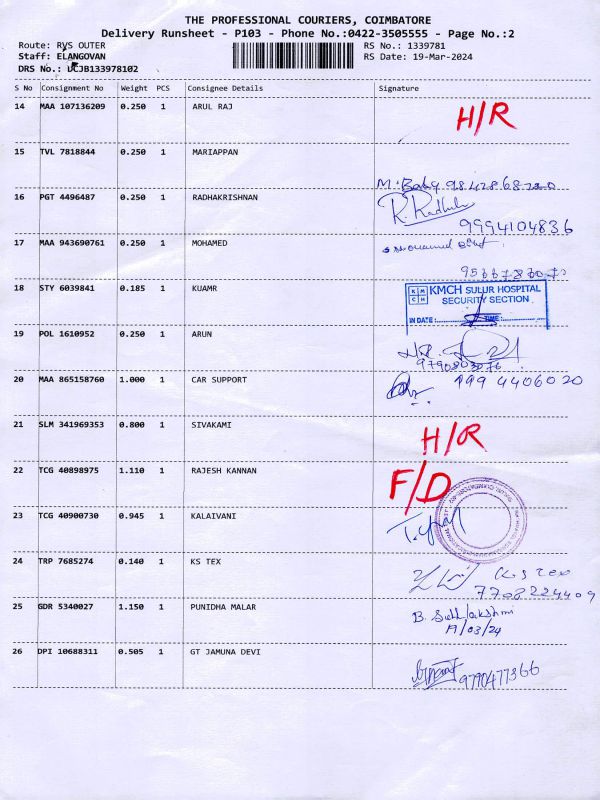 THE PROFESSIONAL COURIERS, COIMBATORE
Delivery Runsheet - P103 - Phone No.:0422-3505555 - Page No.:2
Route: RVS OUTER RS No.: 1339781
Staff: ELANGOVAN RS Date: 19-Mar-2024
DRS No.: UCJB133978102
S No Consignment No Weight PCS Consignee Details Signature
14 MAA 107136209 0.250 1 ARUL RAJ H/R
15 TVL 7818844 0.250 1 MARIAPPAN
M. Baby
16 PGT 4496487 0.250 1 RADHAKRISHNAN R. Radhu
9994104836
17 MAA 943690761 0.250 1 MOHAMED
18 STY 6039841 0.185 1 KUAMR KMCH SULUR HOSPITAL
SECURITY SECTION
IN DATE: TIME:
19 POL 1610952 0.250 1 ARUN
9790803076
20 MAA 865158760 1.000 1 CAR SUPPORT 4406020
21 SLM 341969353 0.800 1 SIVAKAMI H/R
22 TCG 40898975 1.110 1 RAJESH KANNAN F/D
23 TCG 40900730 0.945 1 KALAIVANI
24 TRP 7685274 0.140 1 KS TEX Ks Tex
7708224409
25 GDR 5340027 1.150 1 PUNIDHA MALAR B. Subhlakshmi
19/03/24
26 DPI 10688311 0.505 1 GT JAMUNA DEVI
9790477366